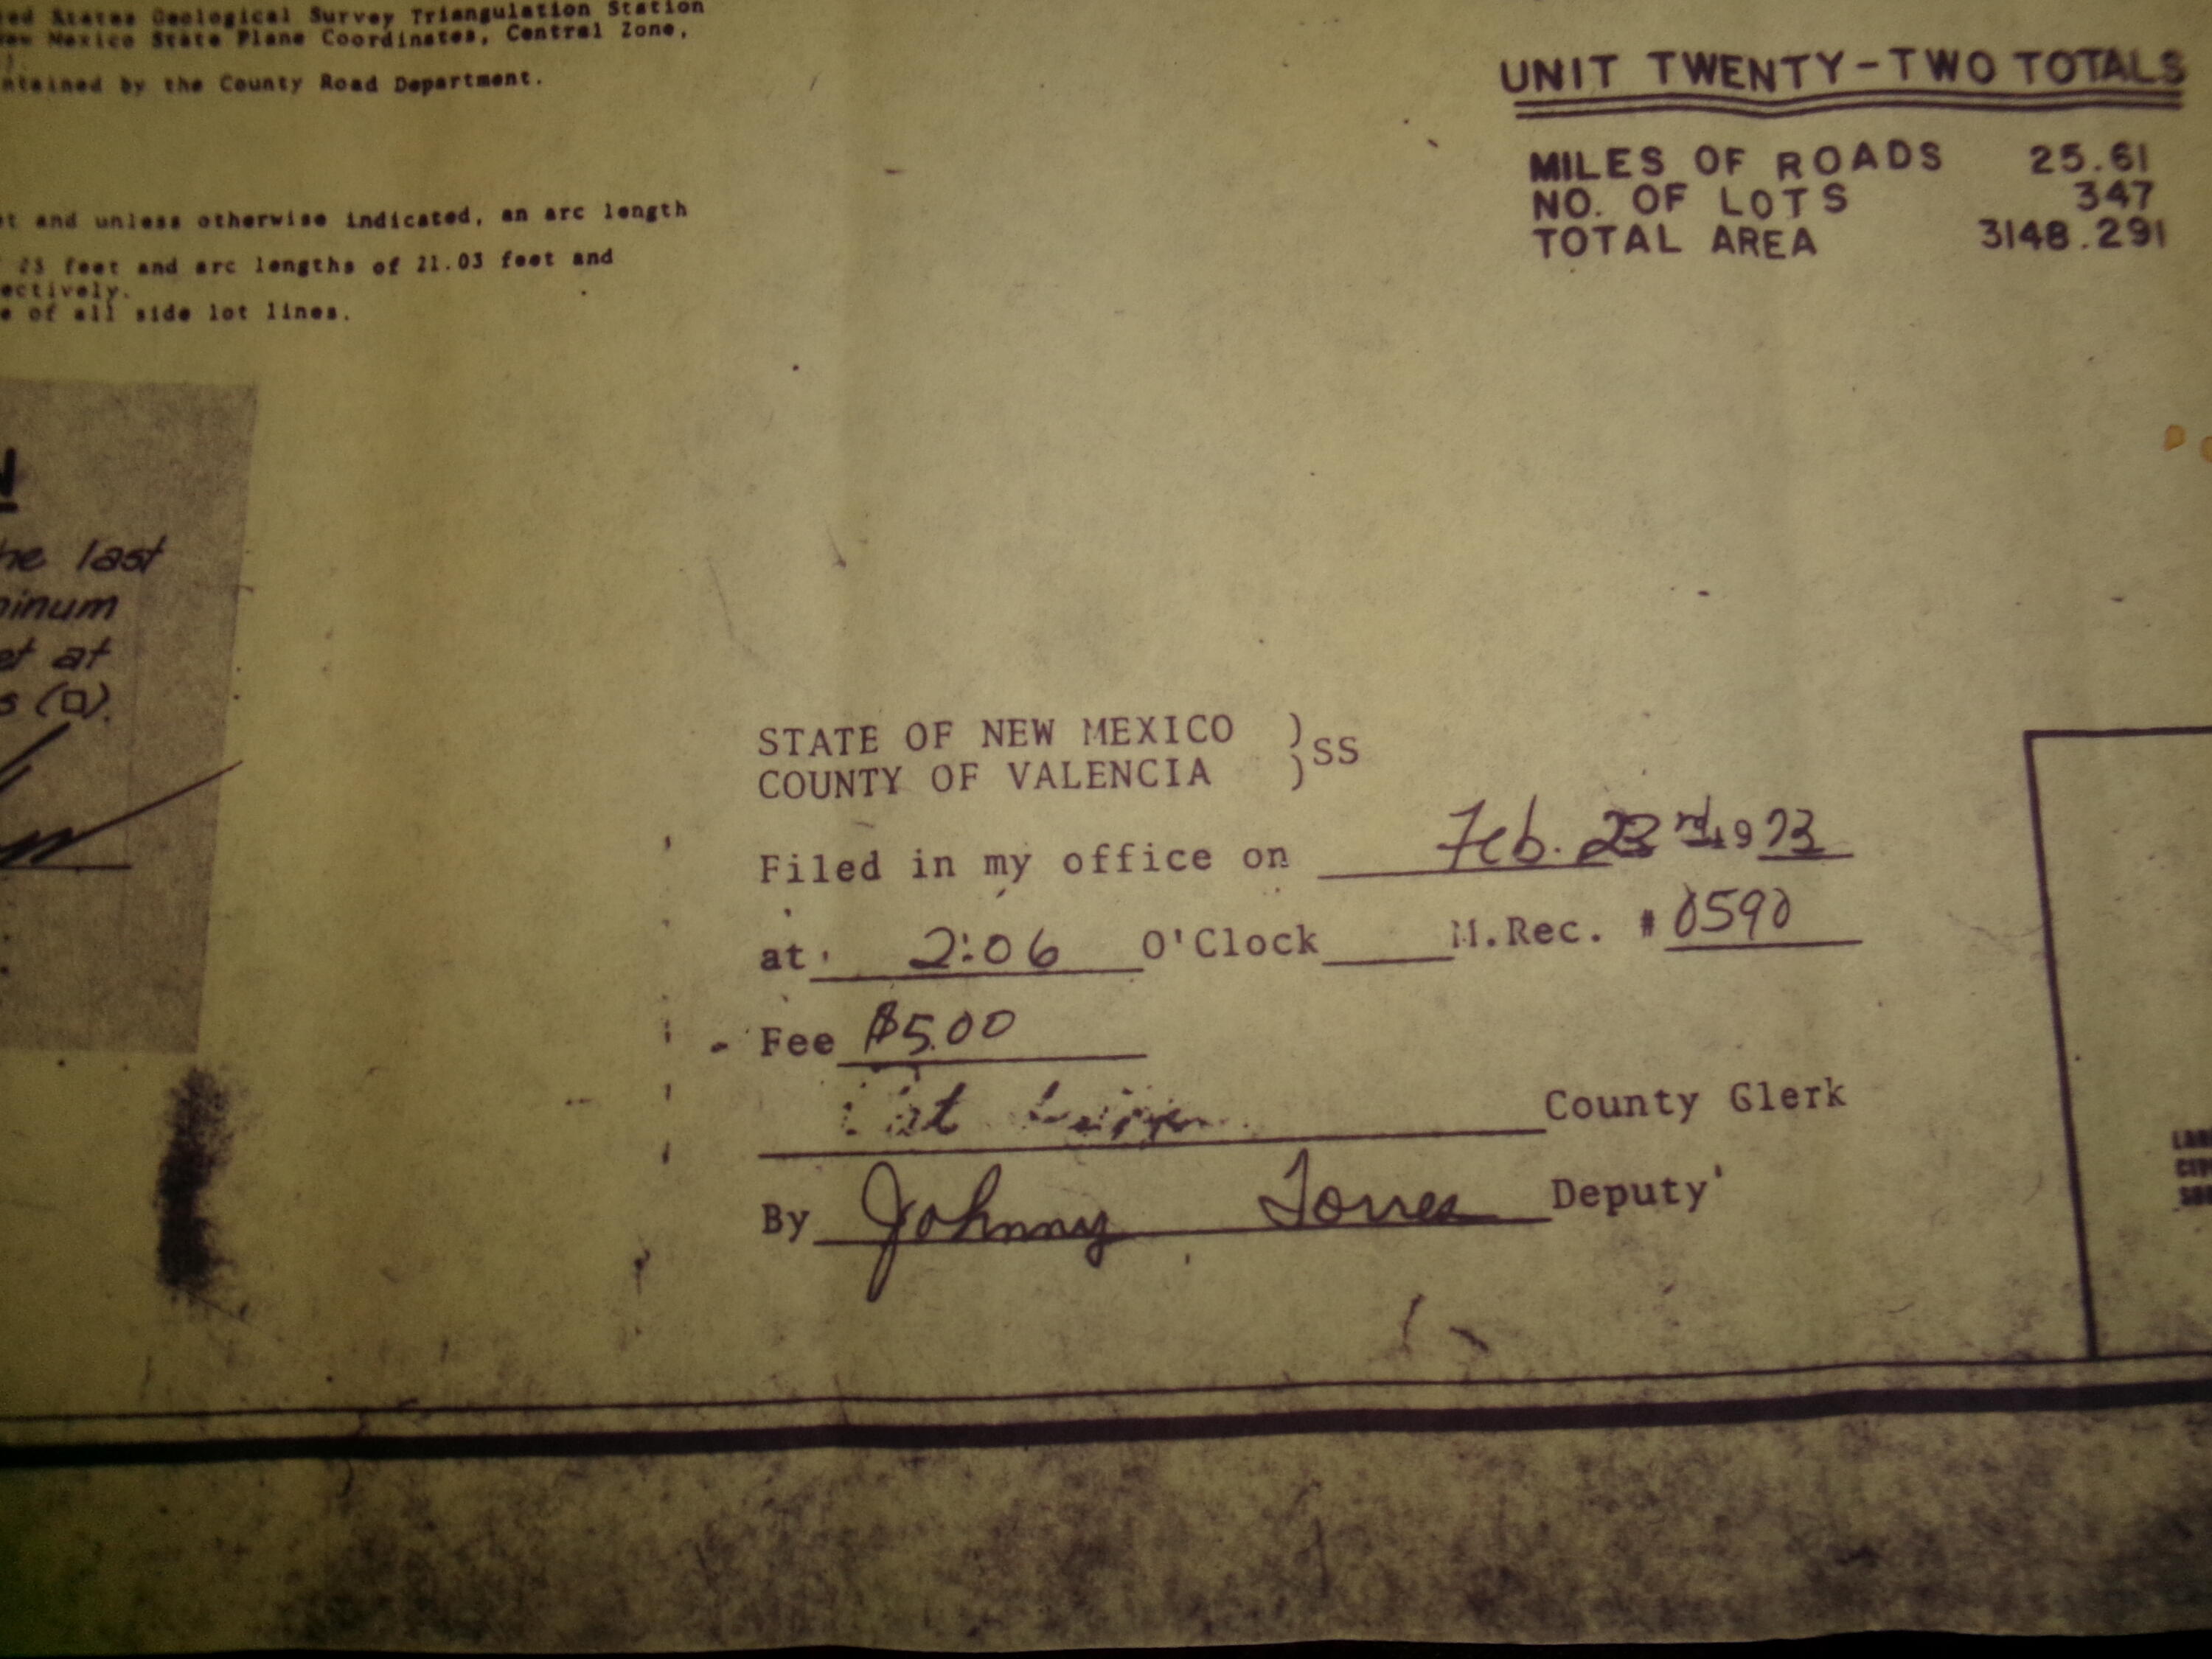 ed States Geological Survey Triangulation Station
New Mexico State Plane Coordinates, Central Zone,
).
ntained by the County Road Department.
et and unless otherwise indicated, an arc length
25 feet and arc lengths of 21.03 feet and
ectively.
e of all side lot lines.
UNIT TWENTY-TWO TOTALS
MILES OF ROADS 25.61
NO. OF LOTS 347
TOTAL AREA 3148.291
N
he last
minum
et at
s (□).
STATE OF NEW MEXICO )
COUNTY OF VALENCIA ) SS
Filed in my office on Feb. 23rd, 1973
at 2:06 O'Clock M. Rec. # 0590
Fee $5.00
County Clerk
By Johnny Torres Deputy